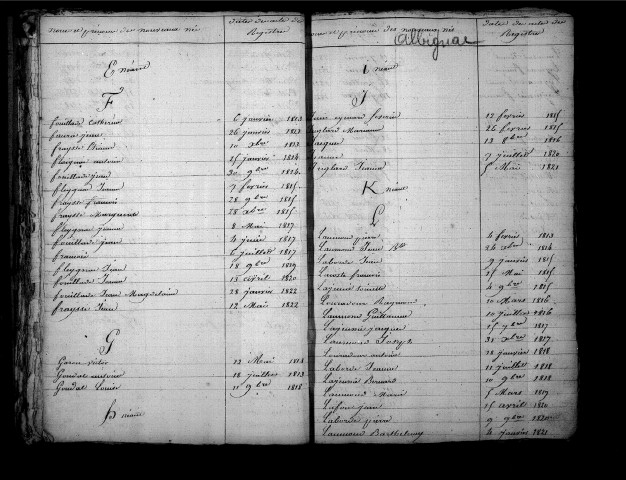 nom et prénom de nouveaux né
Date de acte de Registre
E néant
F
fouillade Catherine 6 janvier 1813
faurie jean 26 janvier 1813
fraysse Etienne 10 xbre 1813
fleygnac antoine 25 janvier 1814
fouillade jean 30 9bre 1814
fleygnac Jeanne 7 fevrier 1815
fraysse francois 28 9bre 1815
fraysse Marguerite 28 xbre 1815
fleygnac jeanne 8 Mai 1817
fouillade jean 4 juin 1817
francois 6 juillet 1817
fleygnac Jean 18 9bre 1819
fouillade Jeanne 13 avril 1820
fouillade Jeanne Magdelaine 28 janvier 1822
fraysse Jean 12 Mai 1822
G
Garen victor 13 Mai 1813
Goudal antoine 18 juillet 1813
Goudal Louise 11 9bre 1818
H néant
nom et prénom des nouveaux né
Date de acte de Registre
Albignac
I néant
J
12 fevrier 1815
Marianne 26 fevrier 1815
Jacques 13 8bre 1816
7 juillet 1820
Jeanne 5 Mai 1821
K néant
L
Laumond pierre 4 fevrier 1813
Laumond Jean Bte 26 xbre 1814
Laborde Jean 9 janvier 1815
francois 25 Mai 1815
4 9bre 1815
Raymond 10 Mars 1816
Laumond Guillaume 10 juillet 1816
jacques 15 9bre 1817
Laumond Joseph 31 xbre 1817
antoine 28 janvier 1818
Laborde Jeanne 11 juillet 1818
Bernard 10 9bre 1818
Laumond Marie 5 Mars 1819
Jean 15 avril 1820
Laborde pierre 9 9bre 1820
Laumond Barthelemy 4 janvier 1821